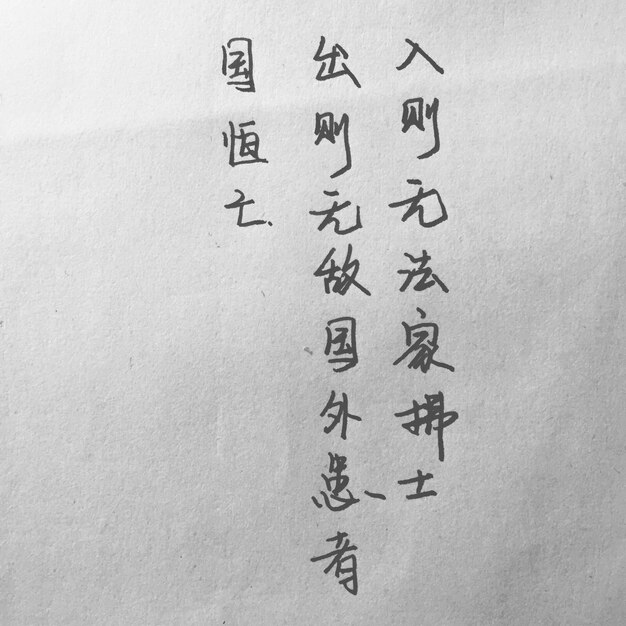 入则无法家拂士
出则无敌国外患者
国恒亡